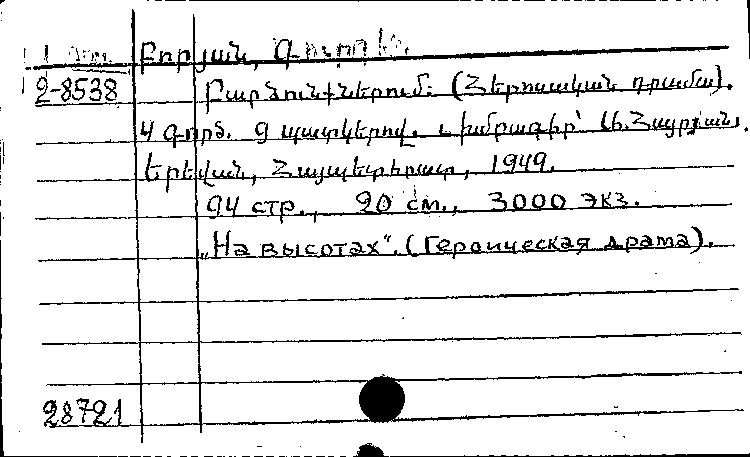 Բորյան, Գուրգեն.
2-8538 Բարձունքներում: (Հերոսական դրամա).
4 գործ. 9 պատկերով. Խմբագիր՝ Ս. Հայրյան.
Երեվան, Հայպետհրատ, 1949.
94 стр., 20 см., 3000 экз.
„На высотах“. (Героическая драма).
28721